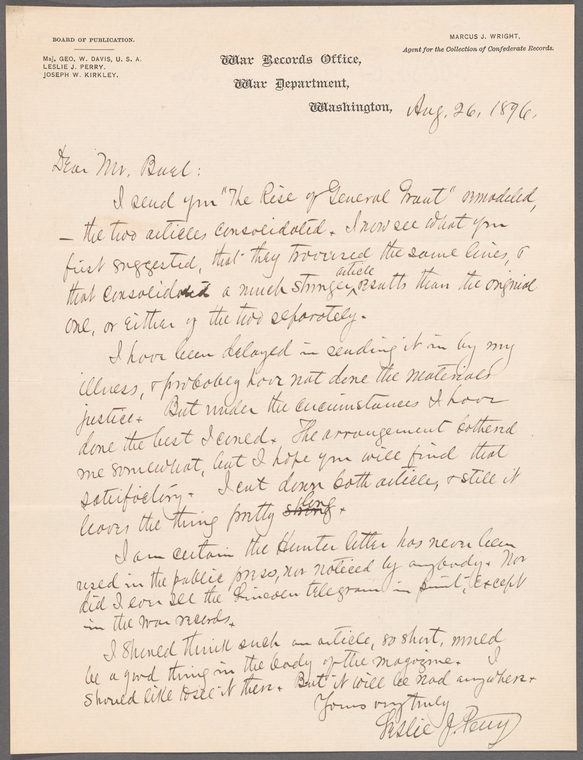 BOARD OF PUBLICATION.
Maj. GEO. W. DAVIS, U. S. A.
LESLIE J. PERRY.
JOSEPH W. KIRKLEY.
MARCUS J. WRIGHT,
Agent for the Collection of Confederate Records.
War Records Office,
War Department,
Washington, Aug. 26, 1896.
Dear Mr. Buel:
I send you "The Rise of General Grant" remodeled,
— the two articles consolidated. I now see what you
first suggested, that they traversed the same lines, &
that consolidated a much stronger article results than the original
one, or either of the two separately.
I have been delayed in sending it in by my
illness, & probably have not done the materials
justice. But under the circumstances I have
done the best I could. The arrangement bothered
me somewhat, but I hope you will find that
satisfactory. I cut down both articles, & still it
leaves the thing pretty strong long.
I am certain the Hunter letter has never been
used in the public press, nor noticed by anybody. Nor
did I ever see the Lincoln telegram in print, except
in the war records.
I should think such an article, so short, would
be a good thing in the body of the magazine. I
should like to see it there. But it will be read anywhere.
Yours very truly
Leslie J. Perry